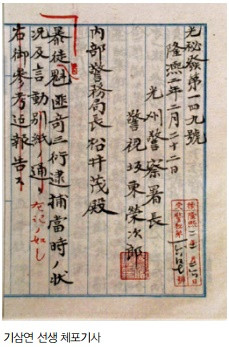 光秘發第四九號
隆熙二年二月二十二日
光州警察署長
警視坂東榮次郎
內部警務局長松井茂殿
暴徒魁匪奇三衍逮捕當時ノ狀
況及言動別紙ノ通リ
右御參考迄報告ス
기삼연 선생 체포기사